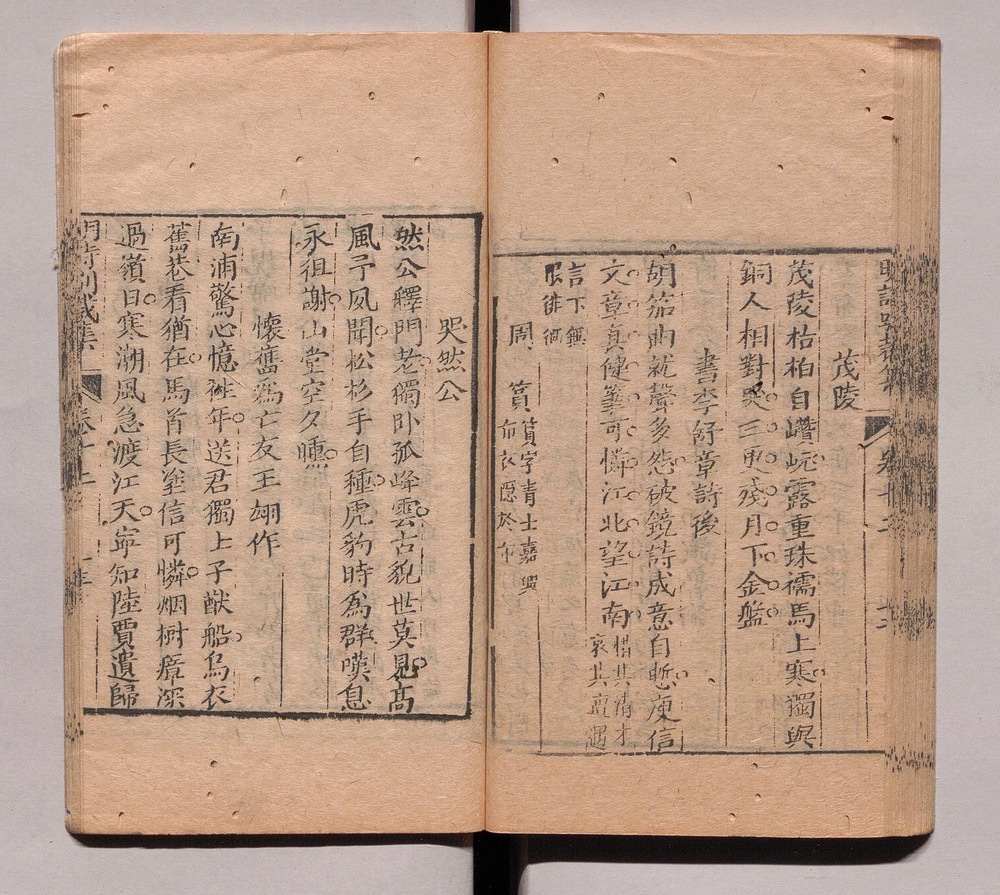 茂陵
茂陵枯柏自巑岏露重珠襦馬上寒獨與
銅人相對哭三更殘月下金盤
書李舒章詩後
胡笳曲就聲多怨破鏡詩成意自慙庾信
文章真健筆可憐江北望江南惜其清才
哀其遭遇
言下無
限徘徊
周篔
篔字青士嘉興
布衣隱於市
哭然公
然公釋門老獨卧孤峰雲古貌世莫見高
風予夙聞松杉手自種虎豹時爲群嘆息
永徂謝山堂空夕曛
懷舊爲亡友王翃作
南浦驚心憶往年送君獨上子猷船烏衣
舊巷看猶在馬首長塗信可憐烟樹瘴深
過嶺日寒潮風急渡江天寧知陸賈遺歸
明詩別裁集
卷十二